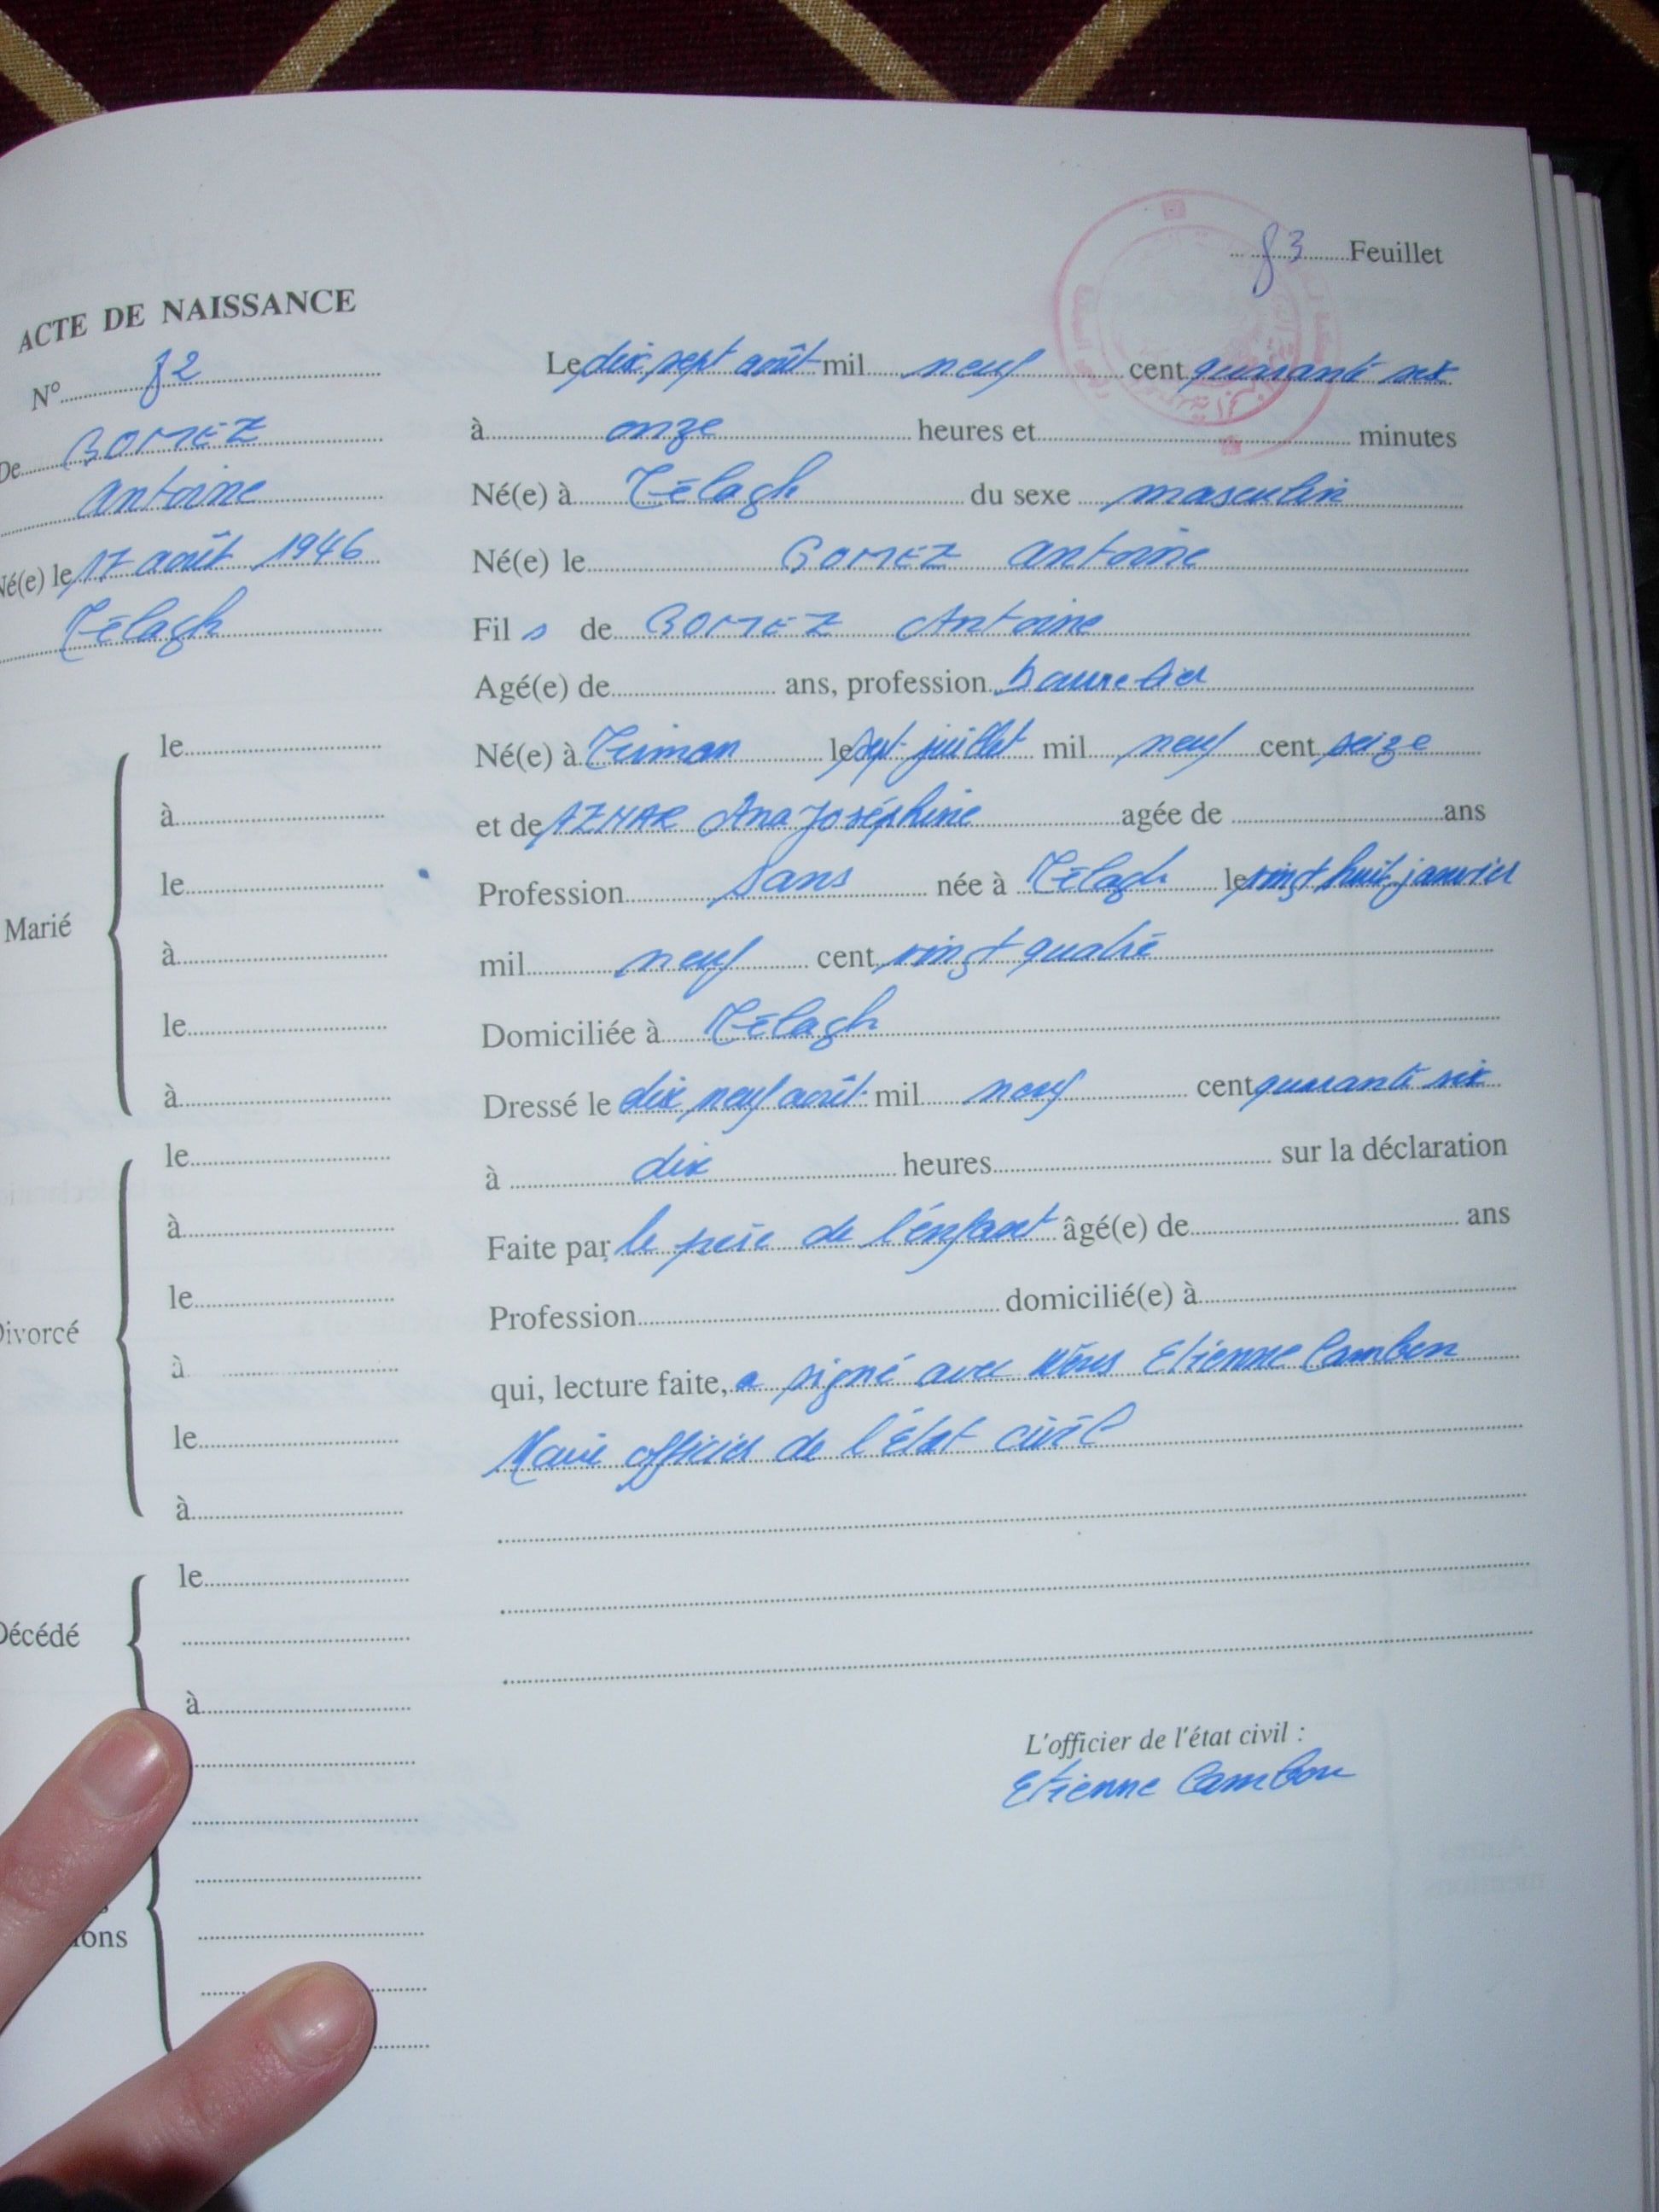 83 Feuillet
ACTE DE NAISSANCE
N° 82
De GOMEZ
Antoine
Né(e) le 17 août 1946
Télagh
Le dix sept août mil neuf cent quarante six
à onze heures et minutes
Né(e) à Télagh du sexe masculin
Né(e) le GOMEZ Antoine
Fils de GOMEZ Antoine
Agé(e) de ans, profession bourrelier
Né(e) à le sept juillet mil neuf cent seize
et de AZNAR Ana Joséphine agée de ans
Profession sans née à Télagh le vingt huit janvier
mil neuf cent vingt quatre
Domiciliée à Télagh
Dressé le dix neuf août mil neuf cent quarante six
à dix heures sur la déclaration
Faite par le père de l'enfant âgé(e) de ans
Profession domicilié(e) à
qui, lecture faite, a signé avec Nous Etienne Cambon
Maire officier de l'état civil
L'officier de l'état civil :
Etienne Cambon
Marié
le
à
le
à
le
à
Divorcé
le
à
le
à
le
à
Décédé
le
à
ions